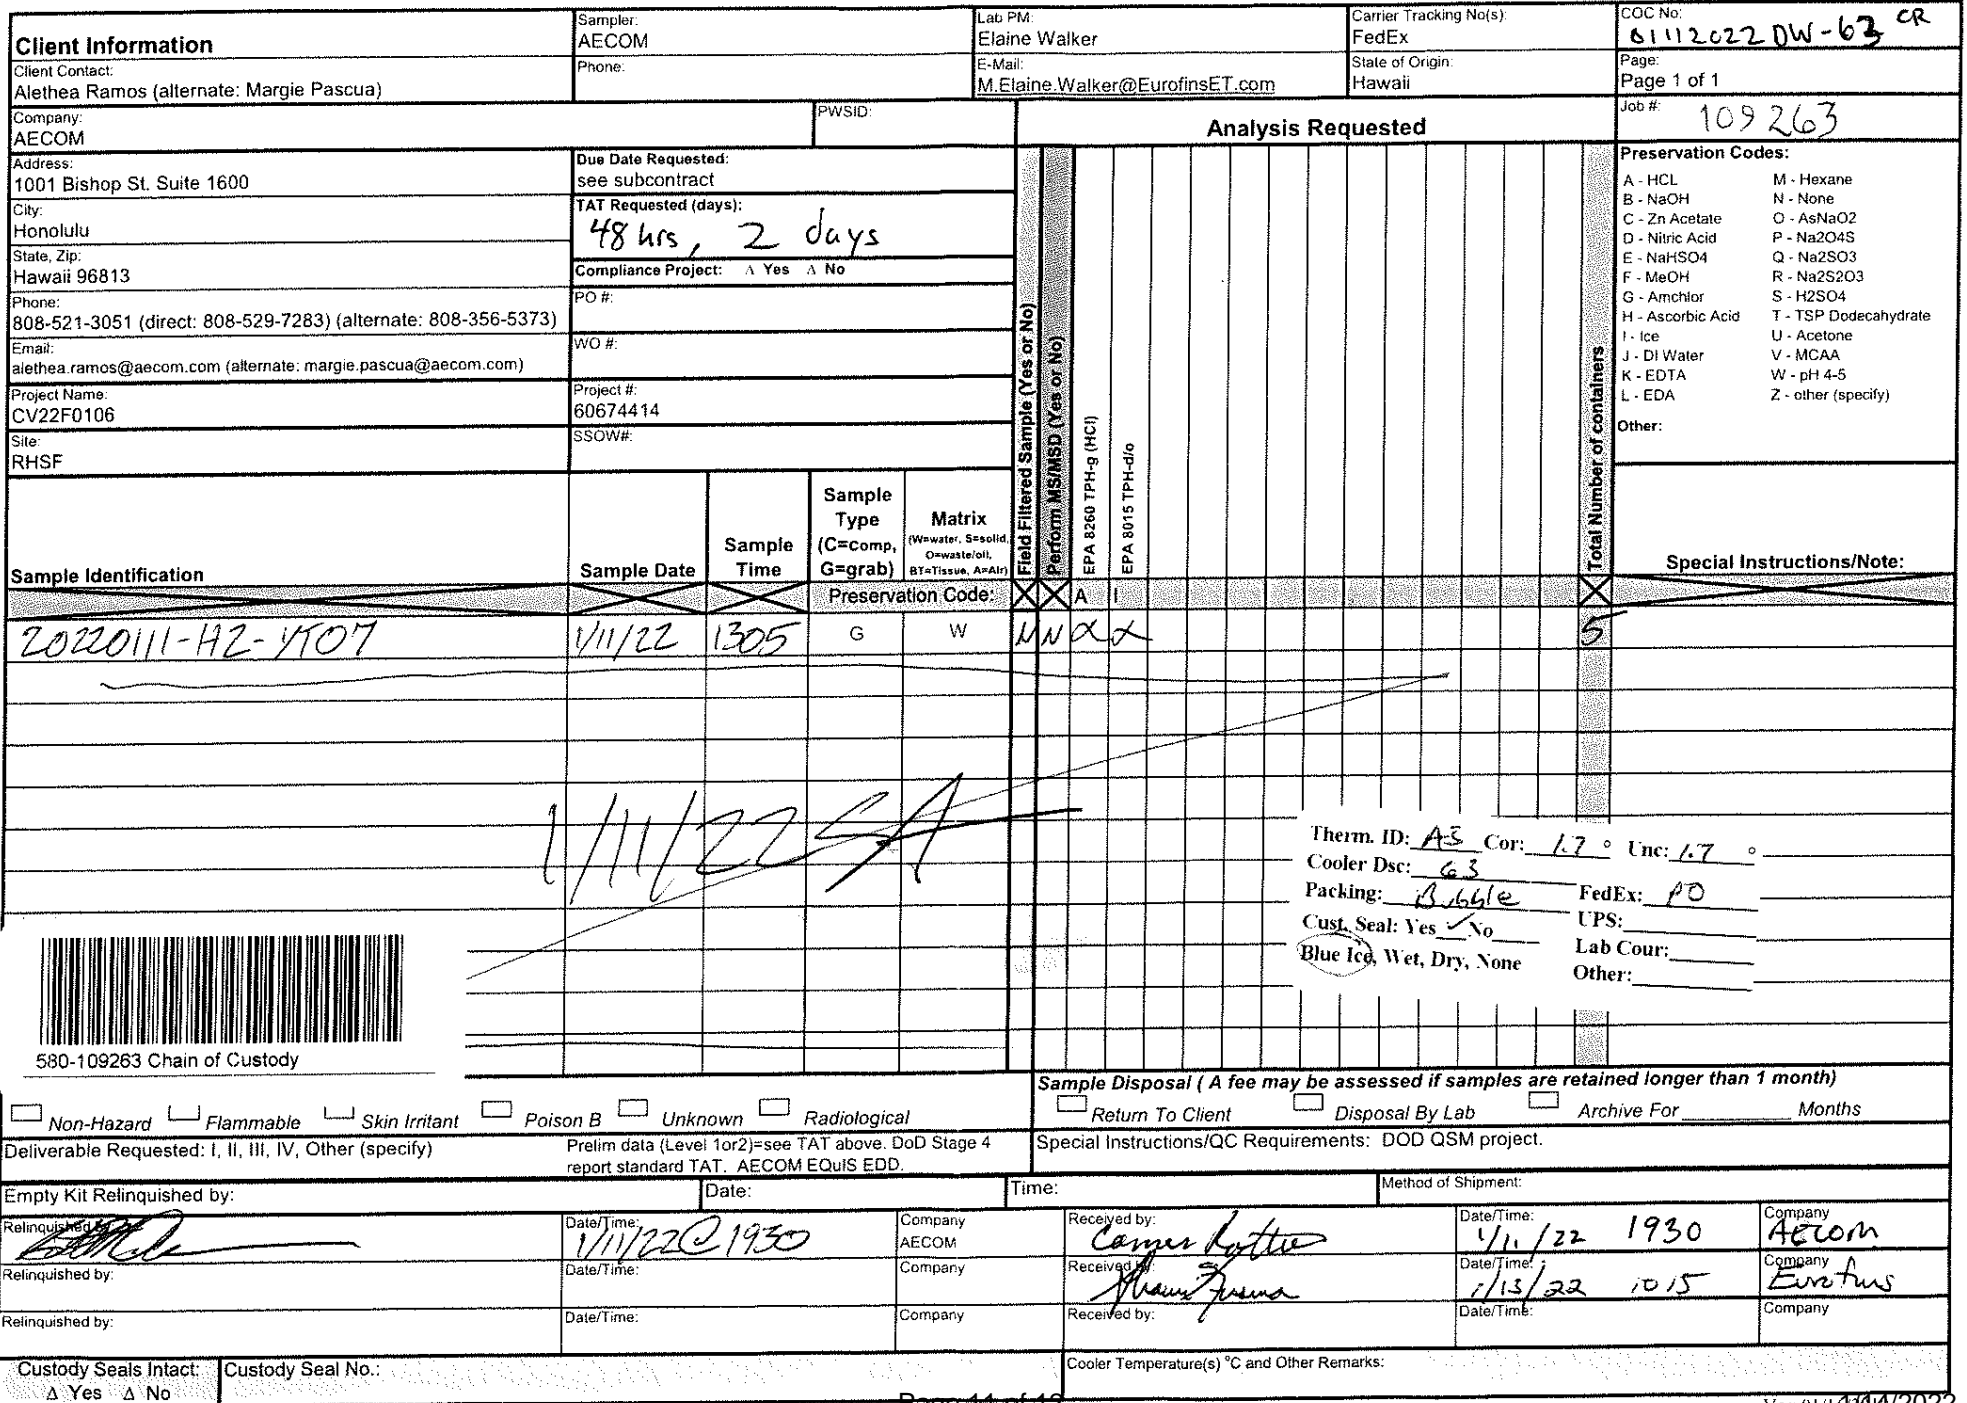 Client Information
Sampler:
AECOM
Lab PM:
Elaine Walker
Carrier Tracking No(s):
FedEx
COC No:
01112022DW-63 CR
Client Contact:
Alethea Ramos (alternate: Margie Pascua)
Phone:
E-Mail:
M.Elaine.Walker@EurofinsET.com
State of Origin:
Hawaii
Page:
Page 1 of 1
Company:
AECOM
PWSID:
Analysis Requested
Job #:
109263
Address:
1001 Bishop St. Suite 1600
Due Date Requested:
see subcontract
City:
Honolulu
TAT Requested (days):
48 hrs, 2 days
State, Zip:
Hawaii 96813
Compliance Project: Δ Yes Δ No
Phone:
808-521-3051 (direct: 808-529-7283) (alternate: 808-356-5373)
PO #:
Email:
alethea.ramos@aecom.com (alternate: margie.pascua@aecom.com)
WO #:
Project Name:
CV22F0106
Project #:
60674414
Site:
RHSF
SSOW#:
Field Filtered Sample (Yes or No)
Perform MS/MSD (Yes or No)
EPA 8260 TPH-g (HCl)
EPA 8015 TPH-d/o
Total Number of containers
Preservation Codes:
A - HCL M - Hexane
B - NaOH N - None
C - Zn Acetate O - AsNaO2
D - Nitric Acid P - Na2O4S
E - NaHSO4 Q - Na2SO3
F - MeOH R - Na2S2O3
G - Amchlor S - H2SO4
H - Ascorbic Acid T - TSP Dodecahydrate
I - Ice U - Acetone
J - DI Water V - MCAA
K - EDTA W - pH 4-5
L - EDA Z - other (specify)
Other:
Sample Identification
Sample Date
Sample Time
Sample Type (C=comp, G=grab)
Matrix (W=water, S=solid, O=waste/oil, BT=Tissue, A=Air)
Special Instructions/Note:
Preservation Code: A I
20220111-H2-YT07 1/11/22 1305 G W N N X X 5
1/11/22 SA
Therm. ID: A3 Cor: 1.7 ° Unc: 1.7 °
Cooler Dsc: 63
Packing: Bubble FedEx: PO
Cust. Seal: Yes ✓ No UPS:
Blue Ice, Wet, Dry, None Lab Cour:
Other:
580-109263 Chain of Custody
Non-Hazard Flammable Skin Irritant Poison B Unknown Radiological
Sample Disposal ( A fee may be assessed if samples are retained longer than 1 month)
Return To Client Disposal By Lab Archive For Months
Deliverable Requested: I, II, III, IV, Other (specify)
Prelim data (Level 1or2)=see TAT above. DoD Stage 4
report standard TAT. AECOM EQuIS EDD.
Special Instructions/QC Requirements: DOD QSM project.
Empty Kit Relinquished by:
Date:
Time:
Method of Shipment:
Relinquished by:
Date/Time:
1/11/22@1930
Company
AECOM
Received by:
Date/Time:
1/11/22 1930
Company
AECOM
Relinquished by:
Date/Time:
Company
Received by:
Date/Time:
1/13/22 1015
Company
Eurofins
Relinquished by:
Date/Time:
Company
Received by:
Date/Time:
Company
Custody Seals Intact:
Δ Yes Δ No
Custody Seal No.:
Cooler Temperature(s) °C and Other Remarks: